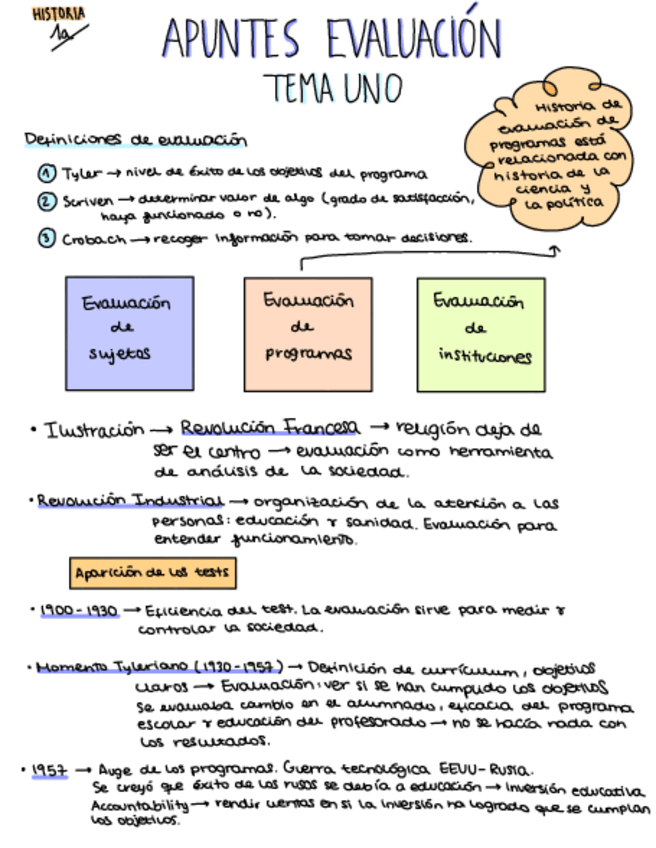 HISTORIA
1a
APUNTES EVALUACIÓN
TEMA UNO
Definiciones de evaluación
1 Tyler → nivel de éxito de los objetivos del programa
2 Scriven → determinar valor de algo (grado de satisfacción,
haya funcionado o no).
3 Crobach → recoger información para tomar decisiones.
Historia de
evaluación de
programas está
relacionada con
historia de la
ciencia y
la política
Evaluación
de
sujetos
Evaluación
de
programas
Evaluación
de
instituciones
• Ilustración → Revolución Francesa → religión deja de
ser el centro → evaluación como herramienta
de análisis de la sociedad.
• Revolución Industrial → organización de la atención a las
personas: educación y sanidad. Evaluación para
entender funcionamiento.
Aparición de los tests
• 1900-1930 → Eficiencia del test. La evaluación sirve para medir y
controlar la sociedad.
• Momento Tyleriano (1930-1957) → Definición de currículum, objetivos
claros → Evaluación: ver si se han cumplido los objetivos
Se evaluaba cambio en el alumnado, eficacia del programa
escolar y educación del profesorado → no se hacía nada con
los resultados.
• 1957 → Auge de los programas. Guerra tecnológica EEUU-Rusia.
Se creyó que éxito de los rusos se debía a educación → Inversión educativa
Accountability → rendir cuentas en si la inversión ha logrado que se cumplan
los objetivos.